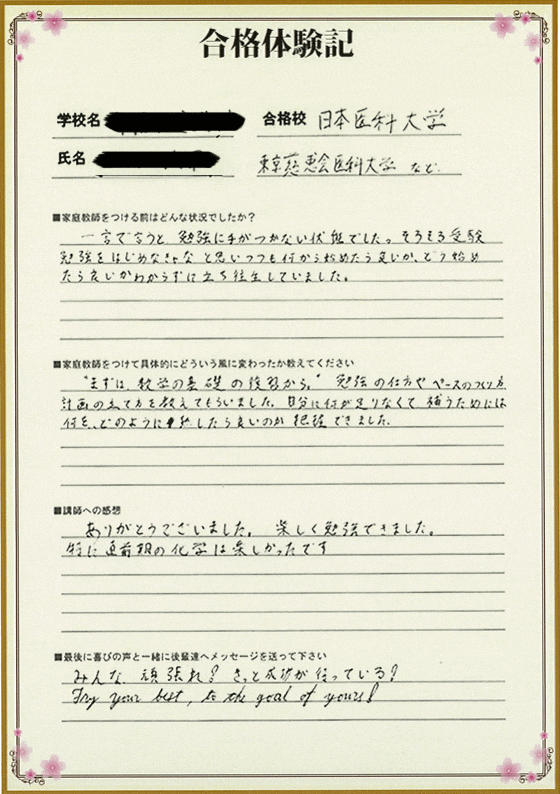 合格体験記
学校名 合格校 日本医科大学
氏名 東京慈恵会医科大学 など
■家庭教師をつける前はどんな状況でしたか?
一言で言うと、勉強に手がつかない状態でした。そろそろ受験
勉強をはじめなきゃな と思いつつも何から始めたら良いか、どう始め
たら良いかわからずに立ち往生していました。
■家庭教師をつけて具体的にどういう風に変わったか教えてください
"まずは、数学の基礎の復習から。" 勉強の仕方や ペースのつくり方
計画の立て方を教えてもらいました。自分に何が足りなくて 補うためには
何を、どのように したら良いのか 把握できました。
■講師への感想
ありがとうございました。 楽しく勉強できました。
特に直前期の化学は楽しかったです
■最後に喜びの声と一緒に後輩達へメッセージを送って下さい
みんな、頑張れ! きっと成功が待っている!
Try your best, to the goal of yours!